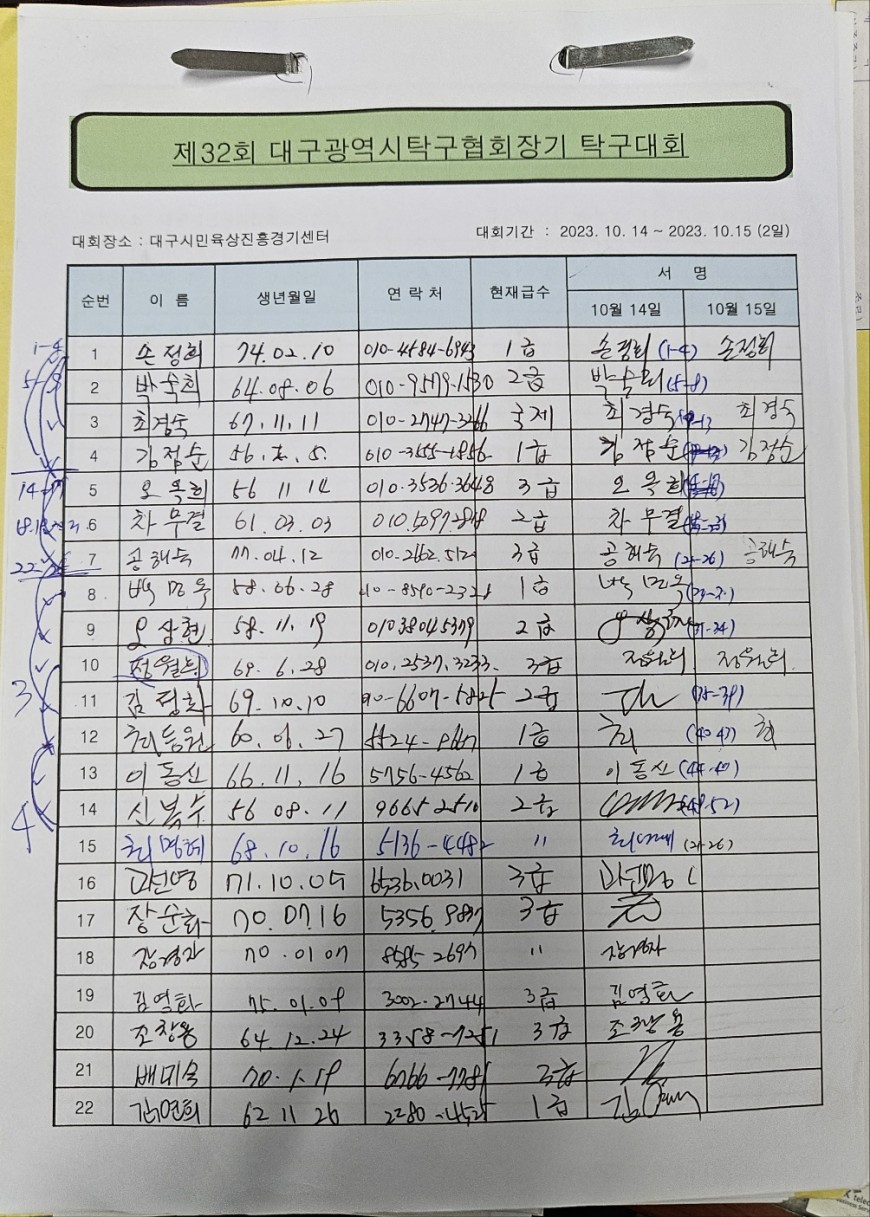 제32회 대구광역시탁구협회장기 탁구대회
대회장소 : 대구시민육상진흥경기센터
대회기간 : 2023. 10. 14 ~ 2023. 10.15 (2일)
순번 이 름 생년월일 연 락 처 현재급수 서 명
10월 14일 10월 15일
1 손정희 74.02.10 010-4584-6943 1급 손정희 (1-4) 손정희
2 박숙희 64.08.06 010-9579-1530 2급 박숙희 (5-8)
3 최경숙 67.11.11 010-2747-3266 국제 최경숙 최경숙
4 김정순 56. 5. 010-3555-1856 1급 김정순 김정순
5 오옥희 56 11 14 010.3536.3648 3급 오옥희
6 차무결 61.03.03 010.5097.2818 2급 차무결
7 공해숙 77.04.12 010-2662.512 3급 공해숙 (21-26) 공해숙
8 58.06.28 10-8590-2321 1급
9 오상현 58.11.19 010 3804 5379 2급
10 정월희 69.6.28 010.2537.3233. 3급 정월희 정월희
11 69.10.10 10-6607-5825 2급 (35-39)
12 60.06.27 1급 (40-43)
13 이동신 66.11.16 5756-4562 1급 이동신
14 신복수 56 08.11 9665 2510 2급 (48-52)
15 68.10.16 5136-4482 " (21-26)
16 71.10.05 6536.0031 3급
17 장순화 70.07.16 5356.8837 3급
18 장경자 70.01 07 8585-2697 " 장경자
19 김영화 75.01.09 3002.2744 3급 김영화
20 조창용 64.12.24 3358-7251 3급 조창용
21 배미숙 70.1.19 6766-7781 3급
22 김연희 62 11 26 2280-4525 1급 김